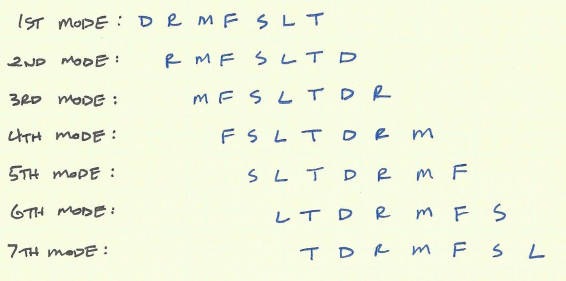 1ST MODE: D R M F S L T
2ND MODE: R M F S L T D
3RD MODE: M F S L T D R
4TH MODE: F S L T D R M
5TH MODE: S L T D R M F
6TH MODE: L T D R M F S
7TH MODE: T D R M F S L